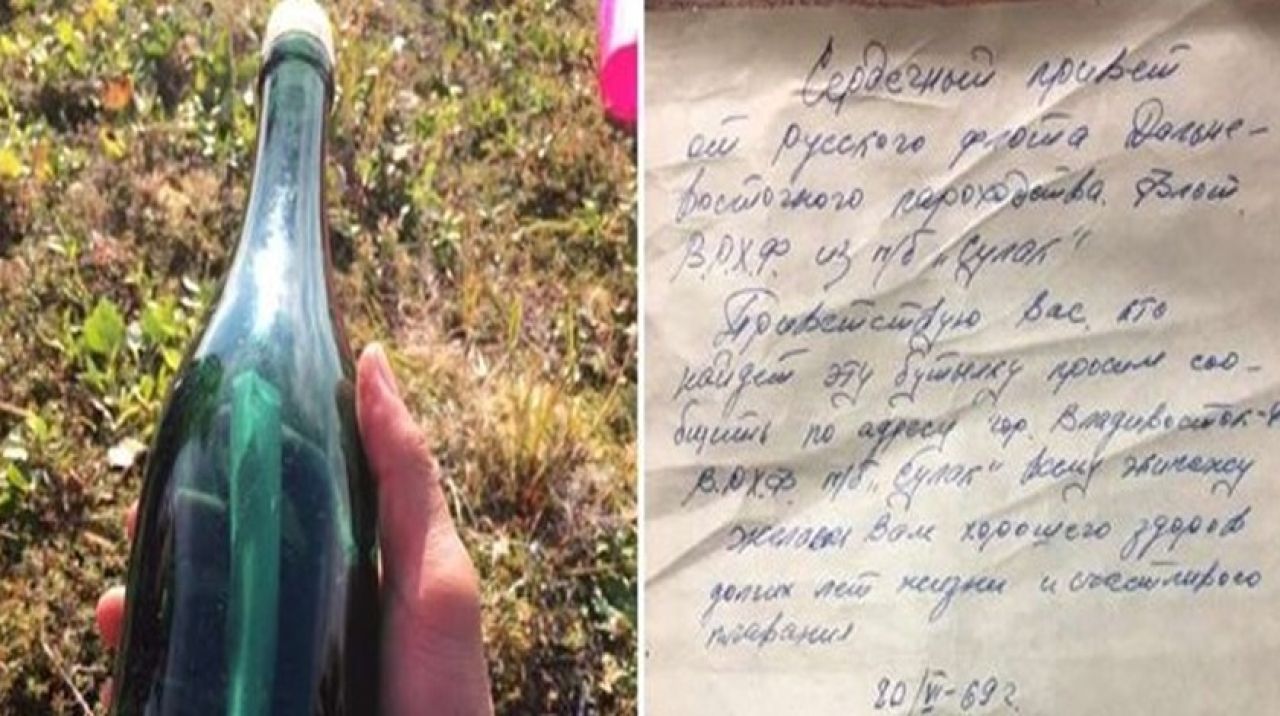 Сердечный привет
от Русского флота Дальне-
восточного пароходства. Флот
В.Р.Х.Ф. из п/б "Сулак"
Приветствую Вас, кто
найдет эту бутылку просим соо-
бщить по адресу гор. Владивосток-
В.Р.Х.Ф. п/б "Сулак" всему экипажу
желаем Вам хорошего здоров
долгих лет жизни и счастливого
плавания
20/VI-69 г.